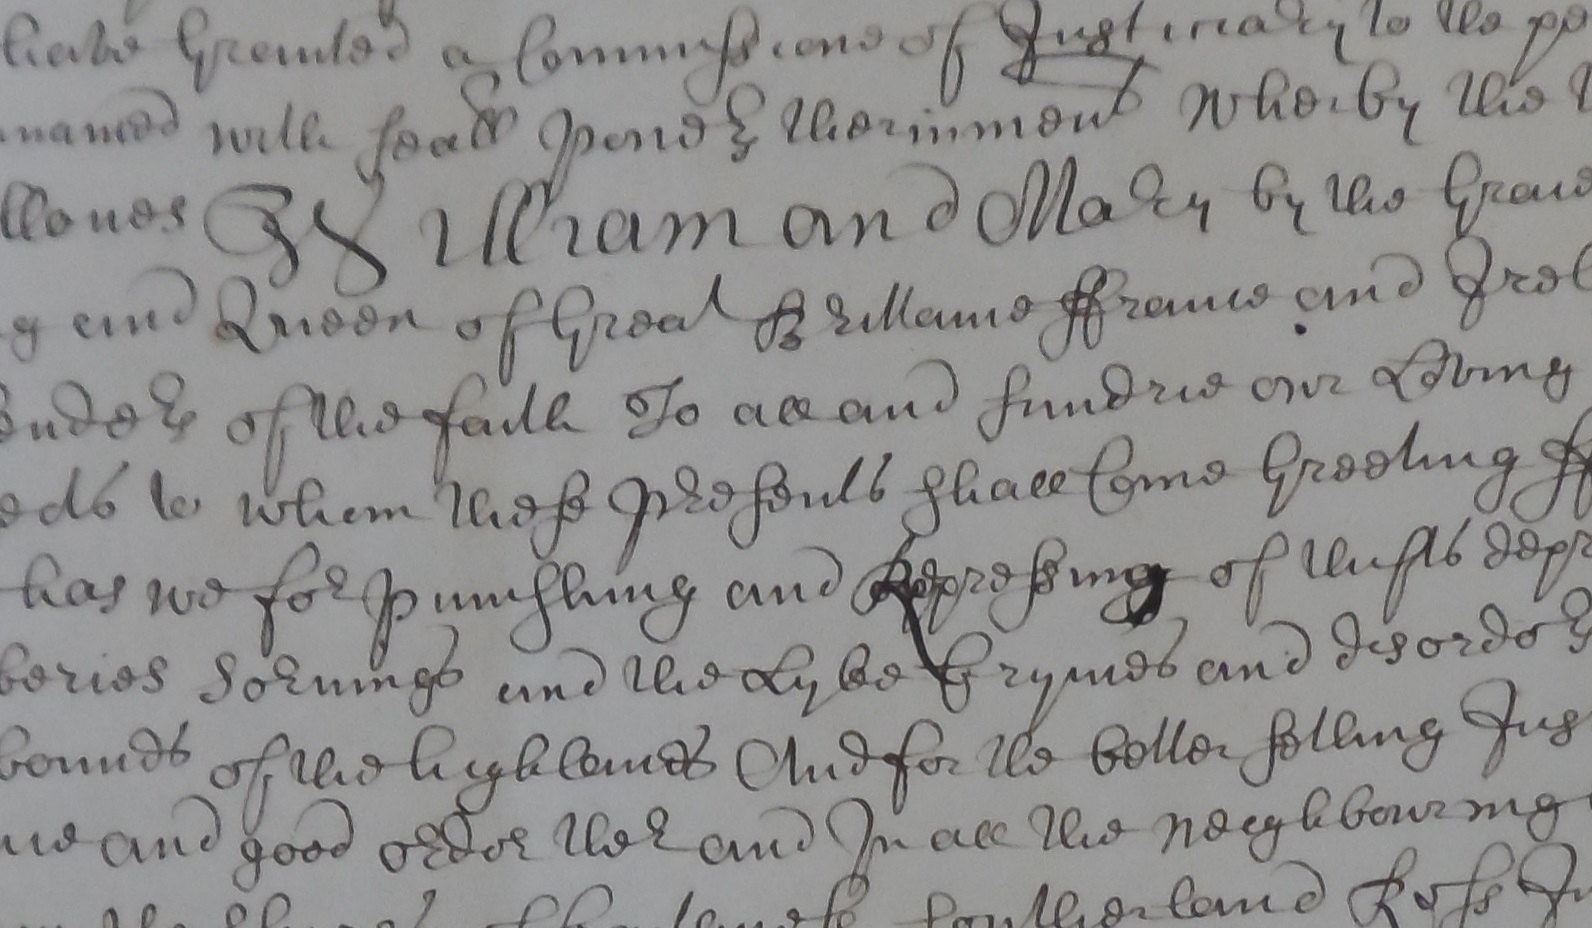 have Granted a Commissione of Justiciary to the pe
named with seall pouers therinment Wherby the
llowes William and Mary by the Grace
g and Queen of Great Brittane ffrance and Irel
ender of the faith To all and sundrie our Loving
eds to whom these presents shall Come Greeting ff
has we for punishing and Repressing of thifts depr
beries Sornings and the Lyke Crymes and disorders
bounds of the highlands And for the better setling Jus
ce and good order ther and In all the neighbouring
Southerland Ross In